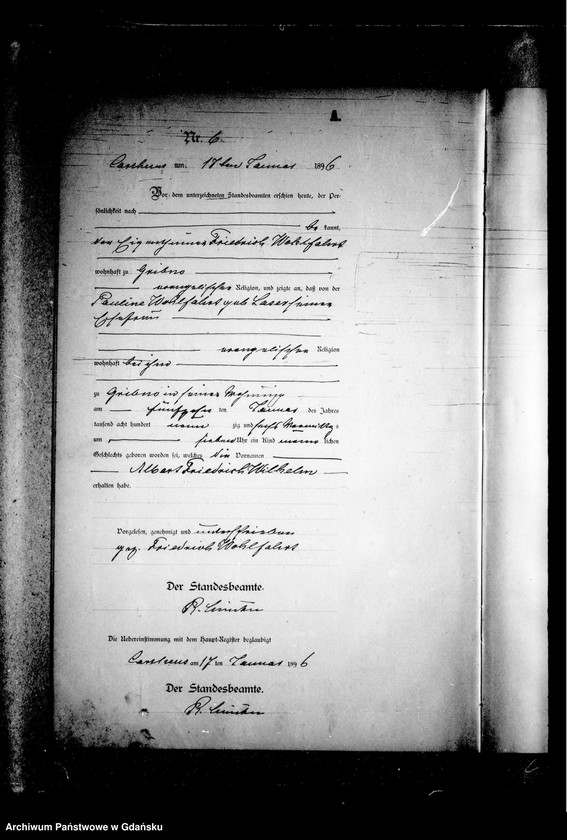 A.
Nr. 6.
Carthaus am 17ten Januar 1896
Vor dem unterzeichneten Standesbeamten erschien heute, der Per-
sönlichkeit nach
be kannt,
der Eigenthümer Friedrich Wohlfahrt
wohnhaft zu Gribno
evangelischer Religion, und zeigte an, daß von der
Pauline Wohlfahrt geb. seiner
Ehefrau
evangelischer Religion
wohnhaft bei ihm
zu Gribno in seiner Wohnung
am fünfzehnten Januar des Jahres
tausend acht hundert neun zig und sechs Vormittags
um sieben Uhr ein Kind männlichen
Geschlechts geboren worden sei, welches die Vornamen
Albert Friedrich Wilhelm
erhalten habe.
Vorgelesen, genehmigt und unterschrieben
gez. Friedrich Wohlfahrt
Der Standesbeamte.
R.
Die Uebereinstimmung mit dem Haupt-Register beglaubigt
Carthaus am 17ten Januar 1896
Der Standesbeamte.
R.
Archiwum Państwowe w Gdańsku